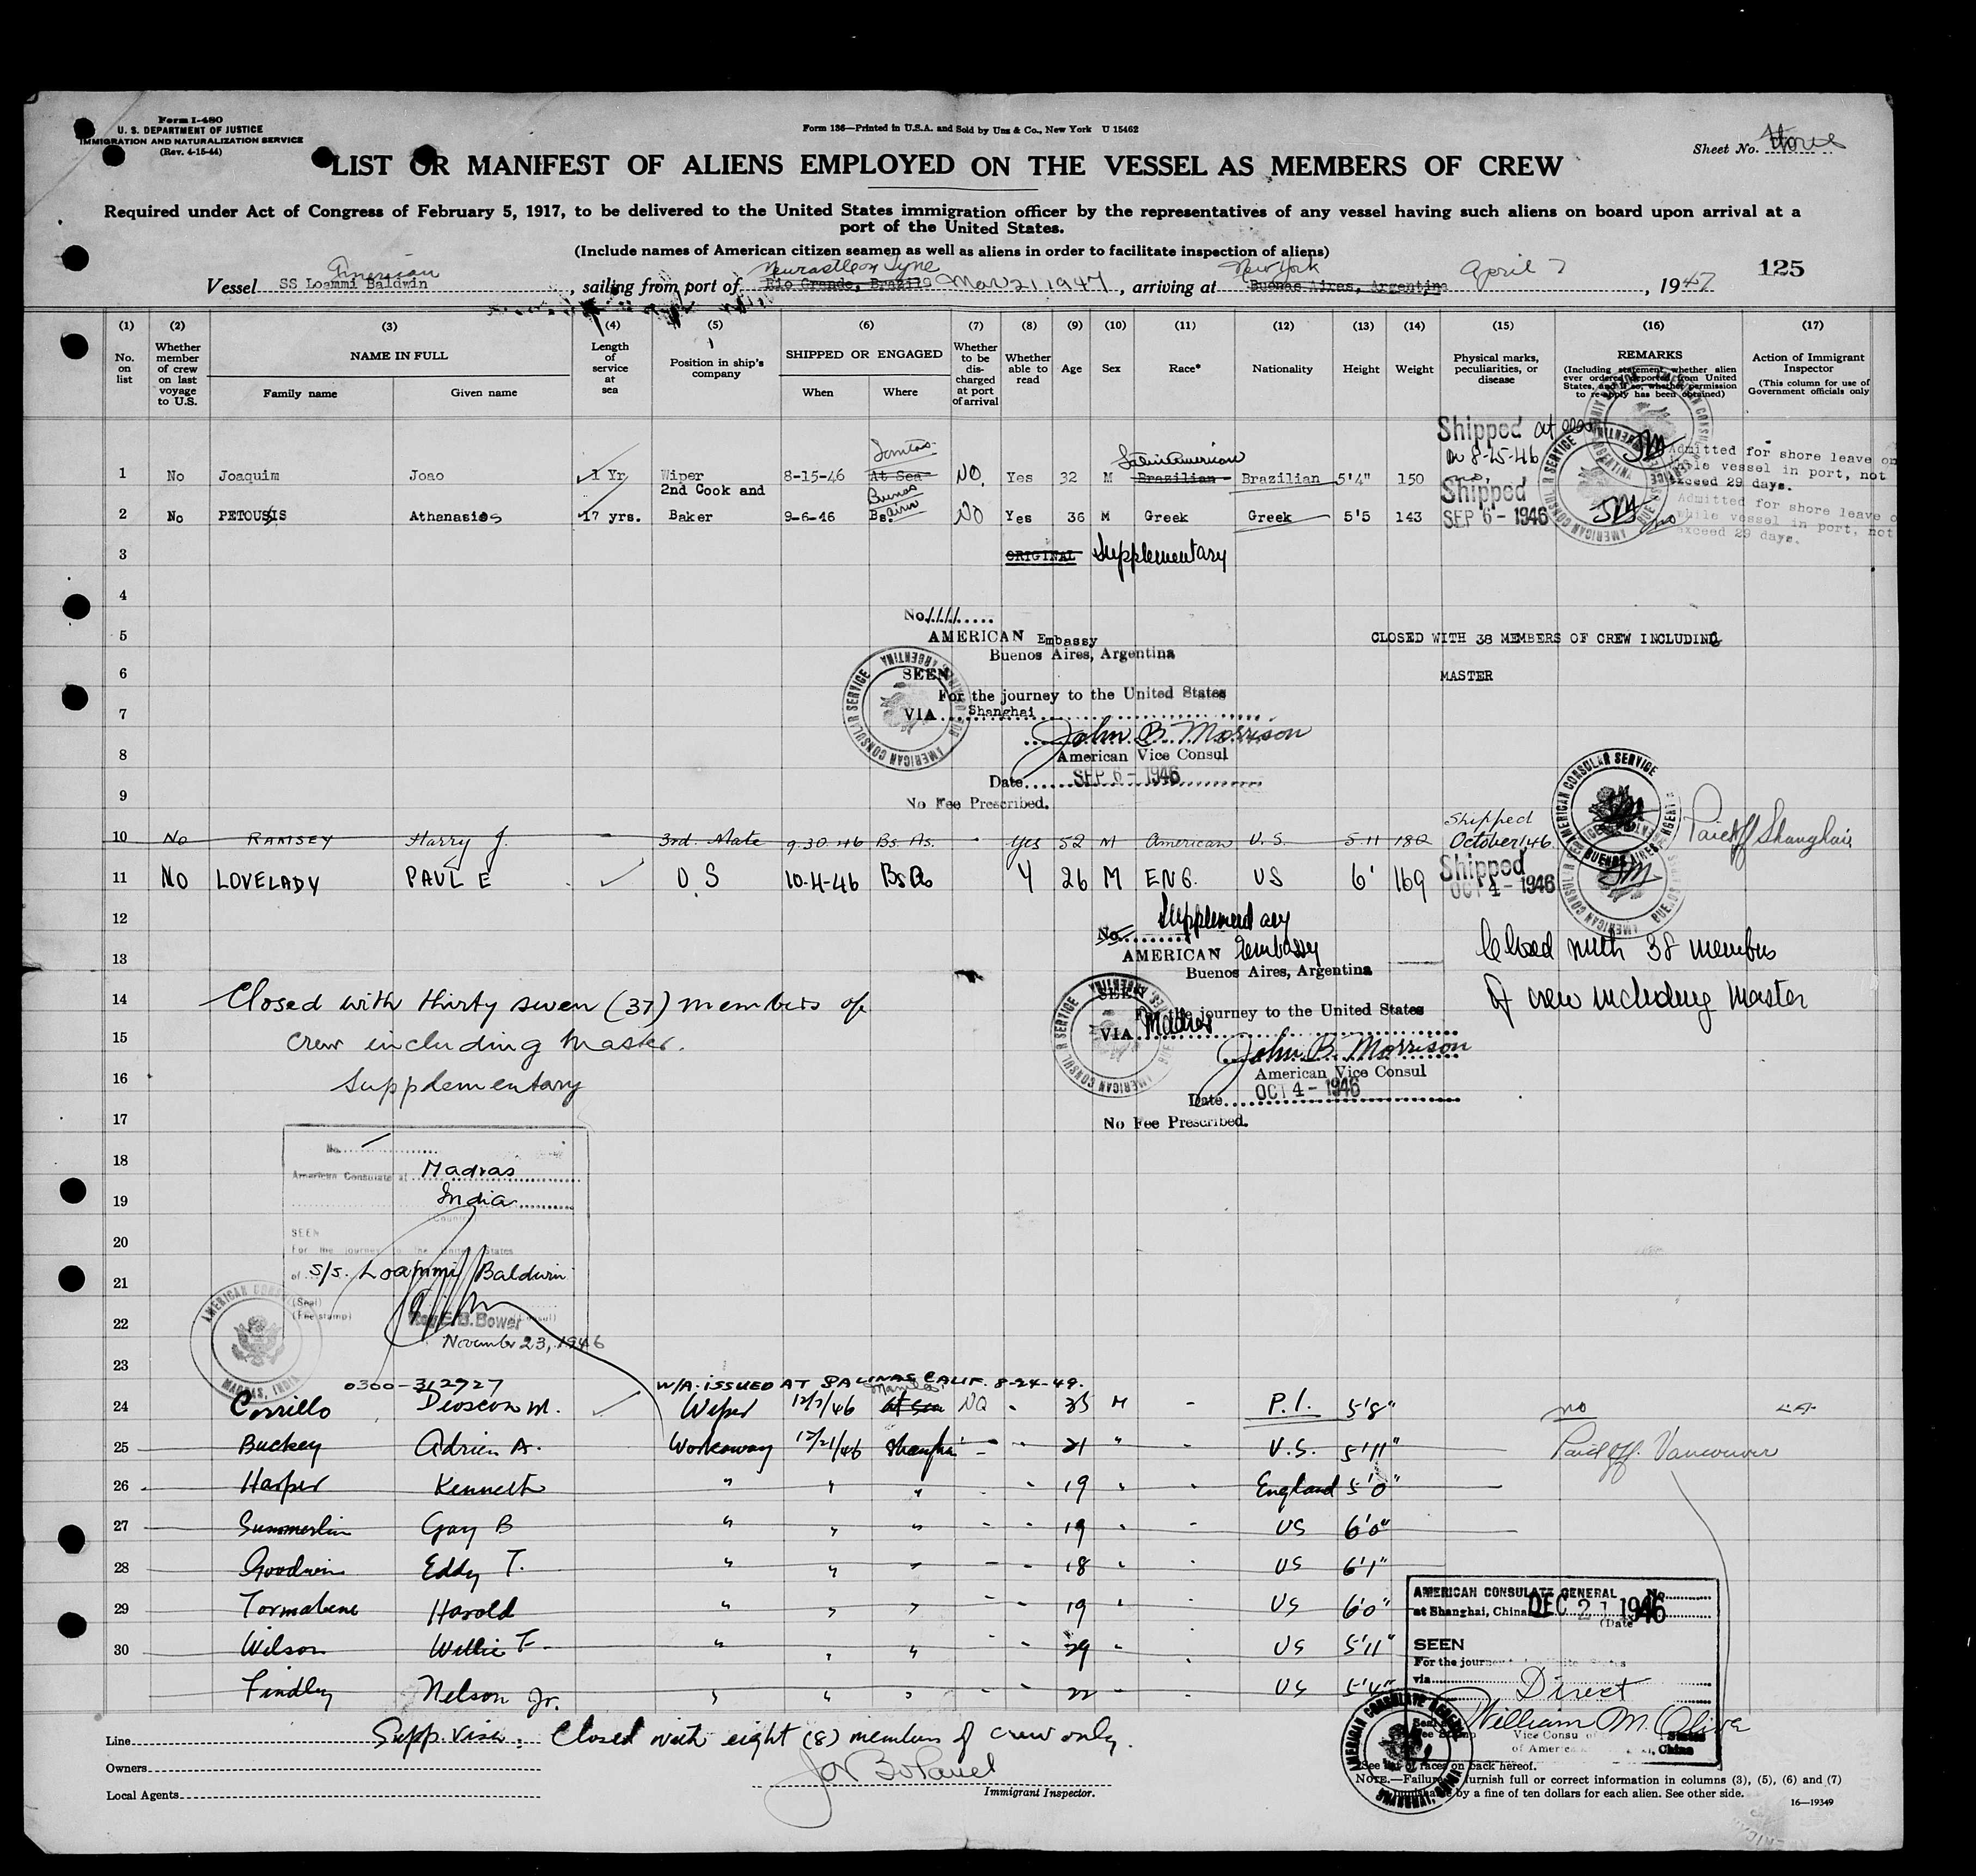 Form I-480
U. S. DEPARTMENT OF JUSTICE
IMMIGRATION AND NATURALIZATION SERVICE
(Rev. 4-15-44)
Form 136—Printed in U.S.A. and Sold by Unz & Co., New York U 15462
Sheet No.
LIST OR MANIFEST OF ALIENS EMPLOYED ON THE VESSEL AS MEMBERS OF CREW
Required under Act of Congress of February 5, 1917, to be delivered to the United States immigration officer by the representatives of any vessel having such aliens on board upon arrival at a
port of the United States.
(Include names of American citizen seamen as well as aliens in order to facilitate inspection of aliens)
American Newcastle on Tyne New York
Vessel SS Loammi Baldwin, sailing from port of Rio Grande, Brazil Mar 21 1947, arriving at Buenos Aires, Argentina April 7, 1947 125
(1) (2) (3) (4) (5) (6) (7) (8) (9) (10) (11) (12) (13) (14) (15) (16) (17)
No. on list
Whether member of crew on last voyage to U.S.
NAME IN FULL
Family name Given name
Length of service at sea
Position in ship's company
SHIPPED OR ENGAGED
When Where
Whether to be discharged at port of arrival
Whether able to read
Age
Sex
Race*
Nationality
Height
Weight
Physical marks, peculiarities, or disease
REMARKS
(Including statement whether alien ever ordered deported from United States, and if so, whether permission to re-apply has been obtained)
Action of Immigrant Inspector
(This column for use of Government officials only
Shipped at sea
on 8-15-46
Santos Latin American
1 No Joaquim Joao 1 Yr Wiper 8-15-46 At Sea NO Yes 32 M Brazilian Brazilian 5'4" 150
Admitted for shore leave on
while vessel in port, not
exceed 29 days.
2nd Cook and Buenos Aires Shipped
2 No PETOUSIS Athanasios 17 yrs. Baker 9-6-46 Bs. NO Yes 36 M Greek Greek 5'5 143 SEP 6 - 1946 no
Admitted for shore leave o
while vessel in port, not
exceed 29 days.
3 ORIGINAL Supplementary
4
No.
5 AMERICAN Embassy CLOSED WITH 38 MEMBERS OF CREW INCLUDING
Buenos Aires, Argentina
6 SEEN MASTER
For the journey to the United States
7 VIA Shanghai
John B. Morrison
8 American Vice Consul
Date SEP 6 - 1946
9 No Fee Prescribed.
AMERICAN CONSULAR SERVICE
BUENOS AIRES ARGENTINA
Shipped
10 No RAMSEY Harry J. 3rd. Mate 9.30.46 Bs. As. Yes 52 M American U.S. 5 11 180 October 46 Paid off Shanghai
11 NO LOVELADY PAUL E O S 10-4-46 Bs As Y 26 M ENG. US 6' 169 Shipped
OCT 4 - 1946
12 Supplementary
No.
13 AMERICAN Embassy Closed with 38 members
Buenos Aires, Argentina
14 Closed with thirty seven (37) members of SEEN of crew including Master
For the journey to the United States
15 crew including Master. VIA Madras
John B. Morrison
16 Supplementary American Vice Consul
Date OCT 4 - 1946
17 No Fee Prescribed.
No.
18 American Consulate at Madras
19 India
(Country)
SEEN
20 For the journey to the United States
21 of S/S. Loammi Baldwin
(Seal)
(Fee stamp)
22 Roy E. B. Bower
November 23, 1946
AMERICAN CONSULATE
MADRAS, INDIA
23
0300-312727 W/A. ISSUED AT SALINAS CALIF. 8-24-49.
Manila
24 Corrillo Dioscon M. Wiper 12/7/46 at sea NO 35 M - P.I. 5'8" no
25 Buckey Adrien A. Workaway 12/21/46 Shanghai 21 " - U.S. 5'11" Paid off. Vancouver
26 Harper Kenneth " " " 19 " - England 5'0"
27 Summerlin Gay B " " " 19 " - US 6'0"
28 Goodwin Eddy T. " " " 18 " - US 6'1"
29 Tormabene Harold " " " 19 " - US 6'0"
30 Wilson Willie F. " " " 29 " - US 5'11"
Findley Nelson Jr. " " " 22 " - US 5'4"
AMERICAN CONSULATE GENERAL No.
at Shanghai, China DEC 21 1946
(Date)
SEEN
For the journey to the United States
via Direct
William M. Olive
Vice Consul of
of America China
AMERICAN CONSULATE GENERAL
SHANGHAI, CHINA
Supp. Visa: Closed with eight (8) members of crew only.
Line
Owners
Local Agents
Immigrant Inspector.
*See list of races on back hereof.
NOTE.—Failure to furnish full or correct information in columns (3), (5), (6) and (7)
punishable by a fine of ten dollars for each alien. See other side.
16—19349